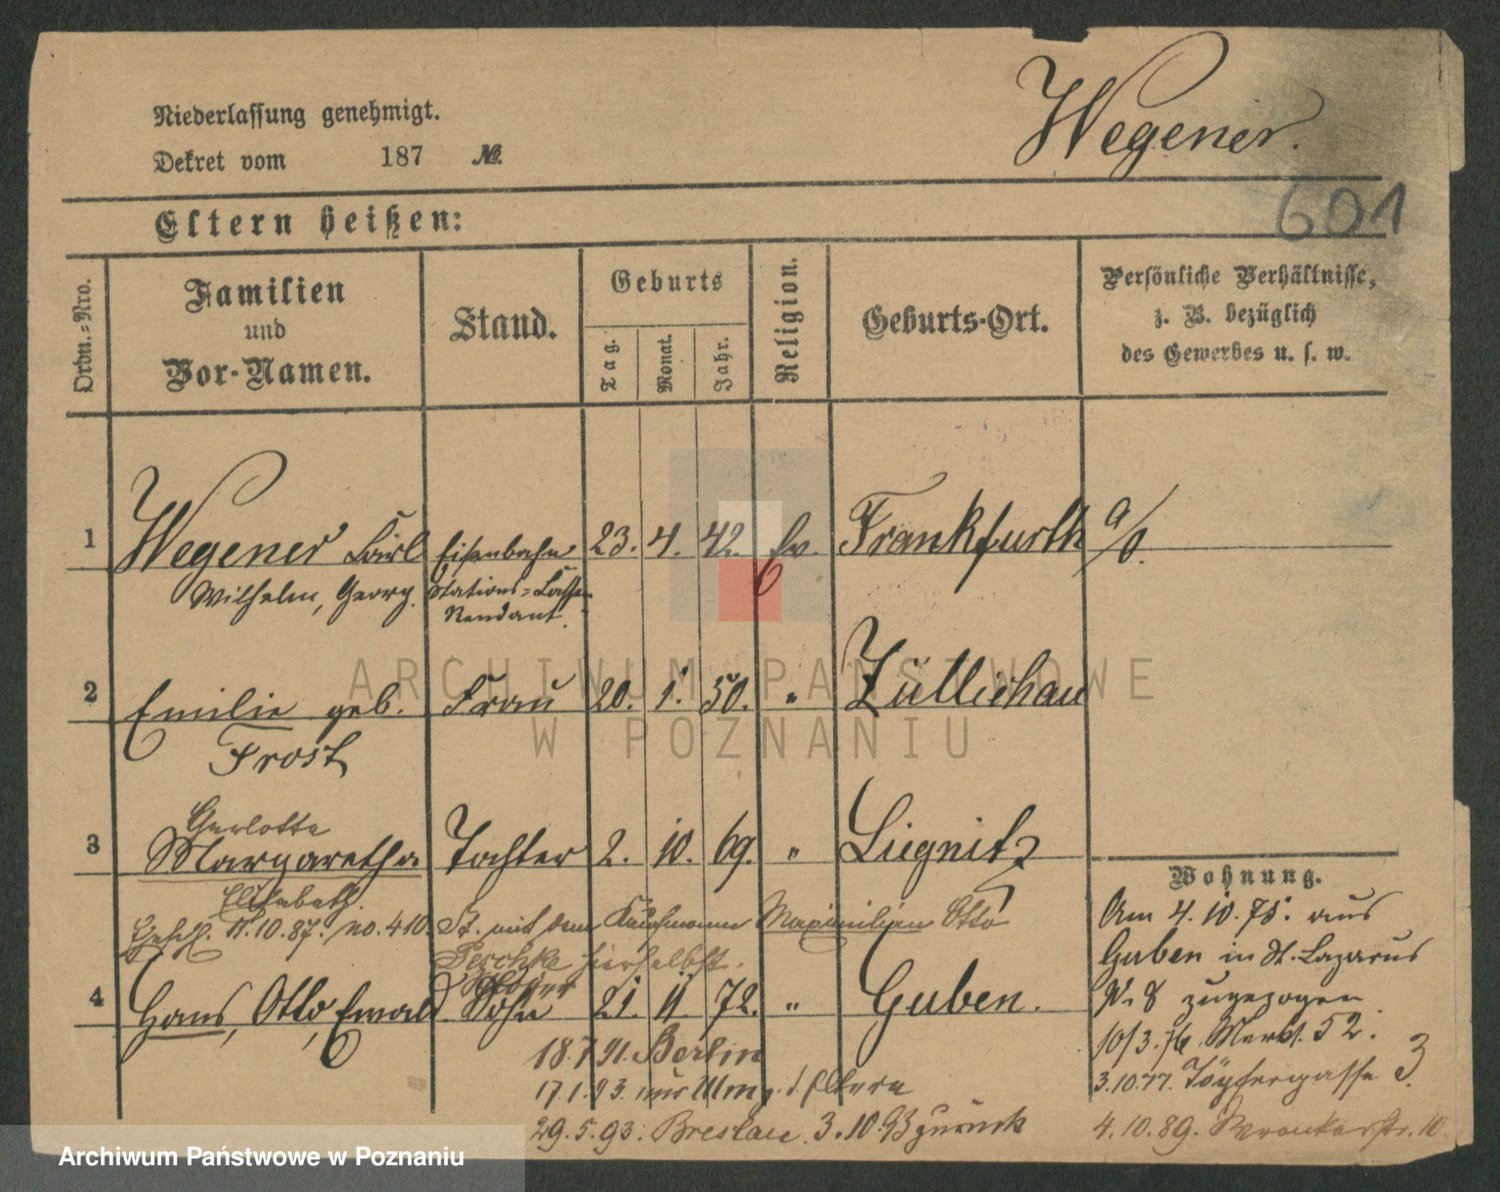 Niederlassung genehmigt.
Dekret vom 187 №.
Wegener.
601
Eltern heißen:
Ordn.-Nro.
Familien
und
Vor-Namen.
Stand.
Geburts
Tag.
Monat.
Jahr.
Religion.
Geburts-Ort.
Persönliche Verhältnisse,
z. B. bezüglich
des Gewerbes u. s. w.
1 Wegener Carl Eisenbahn 23. 4. 42. Ev. Frankfurth a/O.
Wilhelm, Georg. Stations-Cassen
Rendant.
2 Emilie geb. Frau 20. 1. 50. " Züllichau
Frost
Charlotte
3 Margaretha Tochter 2. 10. 69. " Liegnitz
Elisabeth.
11.10.87. No. 410. St. mit dem Kaufmann Maximilian Otto
Peschke hierselbst.
4 Hans, Otto, Ewald Sohn 21. 11. 72. " Guben.
18.7.91. Berlin
17.1.93. aus Ulm z. d. Eltern
29.5.93. Breslau. 3.10.93 zurück
Wohnung.
Am 4.10.75. aus
Guben in St. Lazarus
N. 8 zugezogen
10/3.76. Markt. 52.
3.10.77. Töpfergasse 3.
4.10.89. Wronkerstr. 10.
ARCHIWUM PAŃSTWOWE
W POZNANIU
Archiwum Państwowe w Poznaniu